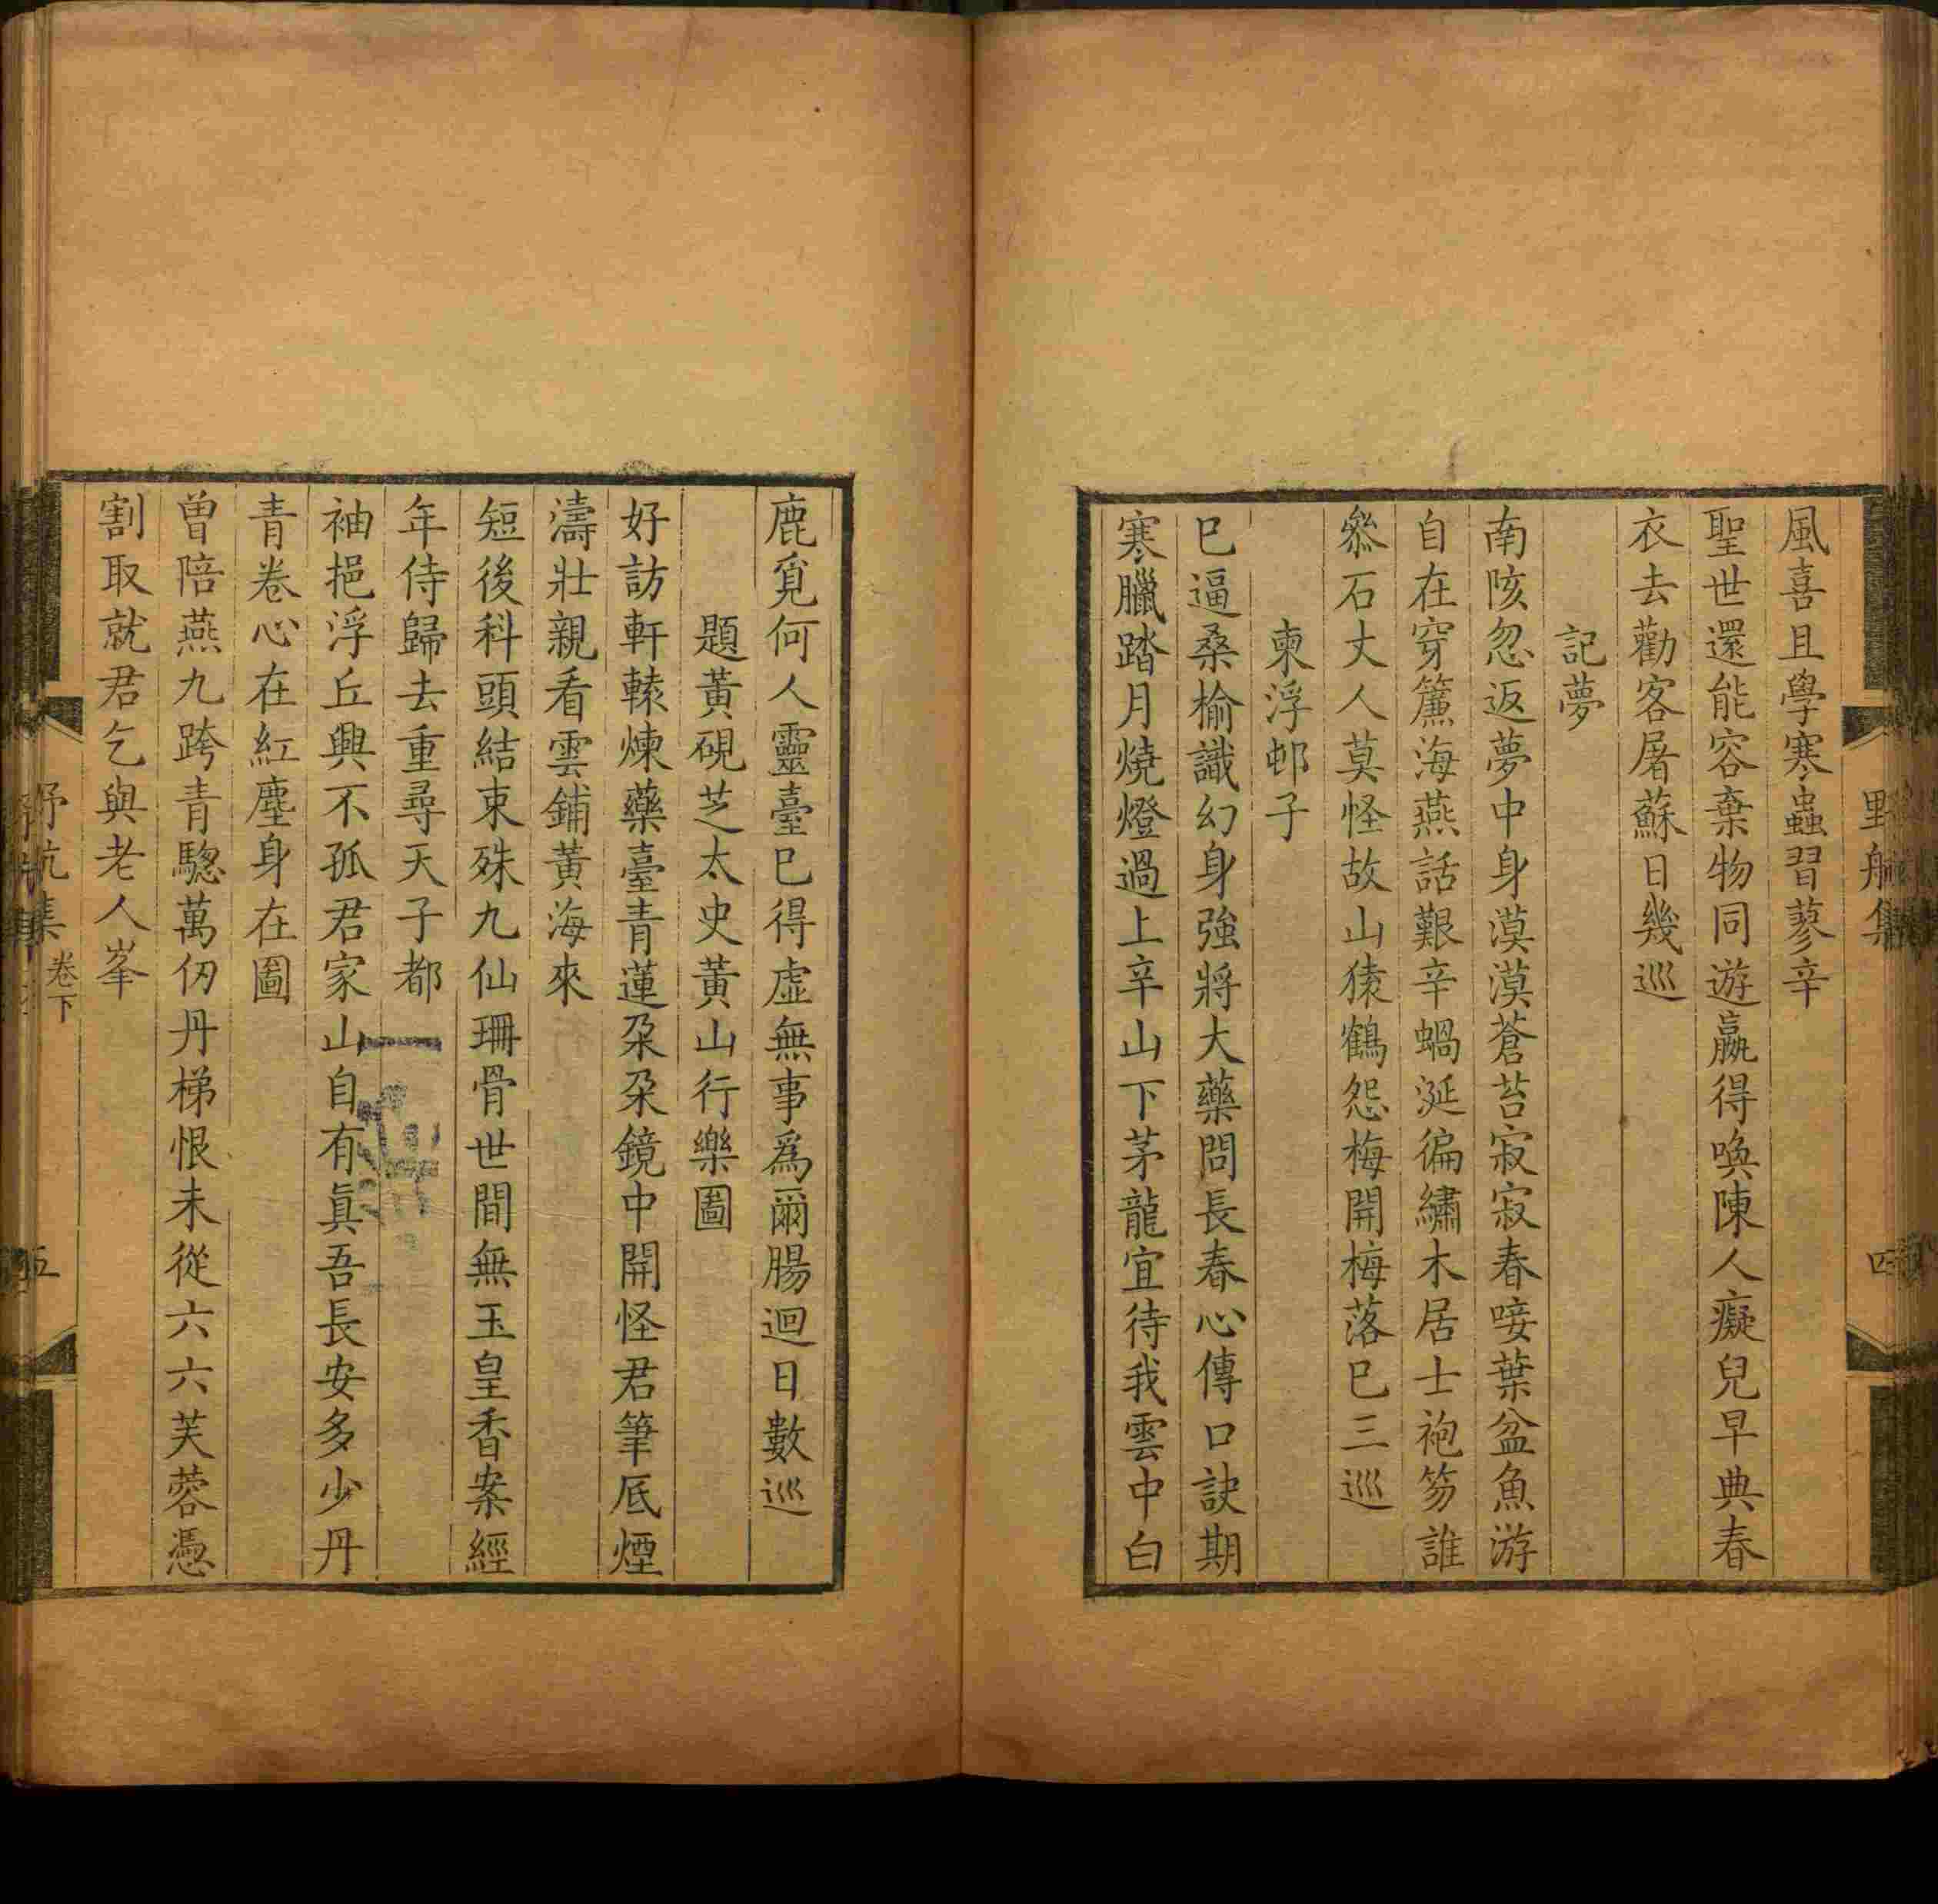 風喜且學寒蟲習蓼辛
聖世還能容棄物同遊嬴得喚陳人癡兒早典春
衣去勸客屠蘇日幾巡
記夢
南陔忽返夢中身漠漠蒼苔寂寂春唼葉盆魚游
自在穿簾海燕話艱辛蝸涎徧繡木居士袍笏誰
叅石丈人莫怪故山猿鶴怨梅開梅落巳三巡
柬浮邨子
巳逼桑榆識幻身強將大藥問長春心傳口訣期
寒臘踏月燒燈過上辛山下茅龍宜待我雲中白
鹿覓何人靈臺巳得虛無事爲爾腸迴日數巡
題黃硯芝太史黃山行樂圖
好訪軒轅煉藥臺青蓮朶朶鏡中開怪君筆底煙
濤壯親看雲鋪黃海來
短後科頭結束殊九仙珊骨世間無玉皇香案經
年侍歸去重尋天子都
袖挹浮丘興不孤君家山自有眞吾長安多少丹
青卷心在紅塵身在圖
曾陪燕九跨青驄萬仞丹梯恨未從六六芙蓉憑
割取就君乞與老人峯
卷下
五